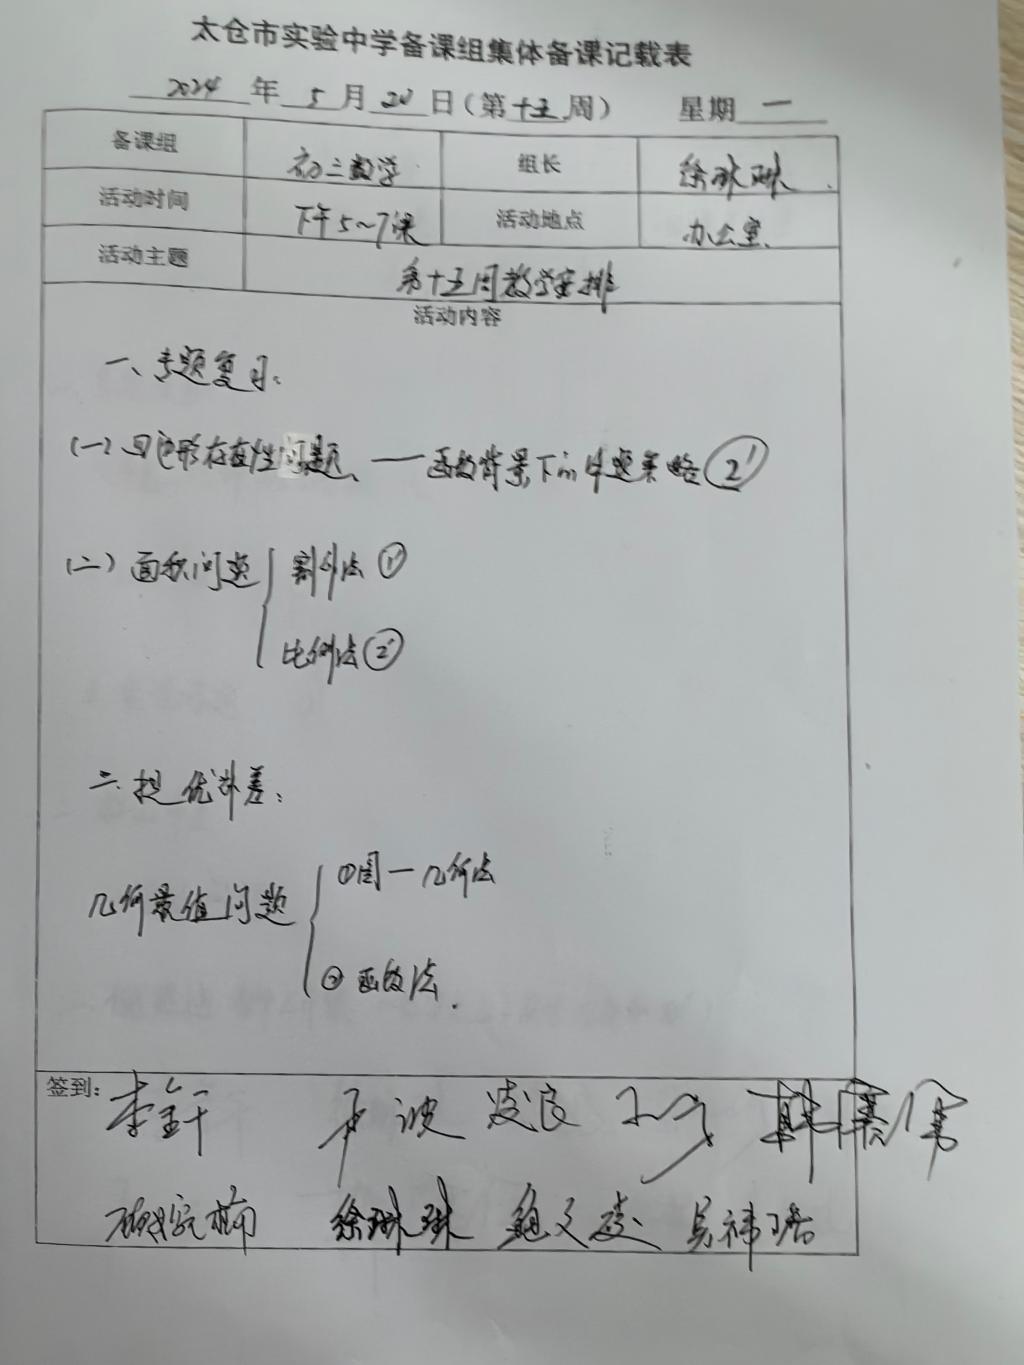 太仓市实验中学备课组集体备课记载表
2024 年 5 月 20 日（第十五周） 星期 一
备课组 初三数学 组长 徐琳琳
活动时间 下午5~7课 活动地点 办公室
活动主题 第十五周教学安排
活动内容
一、专题复习：
(一) 四边形存在性问题、——函数背景下的解题策略 ②'
(二) 面积问题 割补法 ①'
比例法 ②'
二、提优补差：
几何最值问题 ①圆一几何法
② 函数法.
签到：
徐琳琳